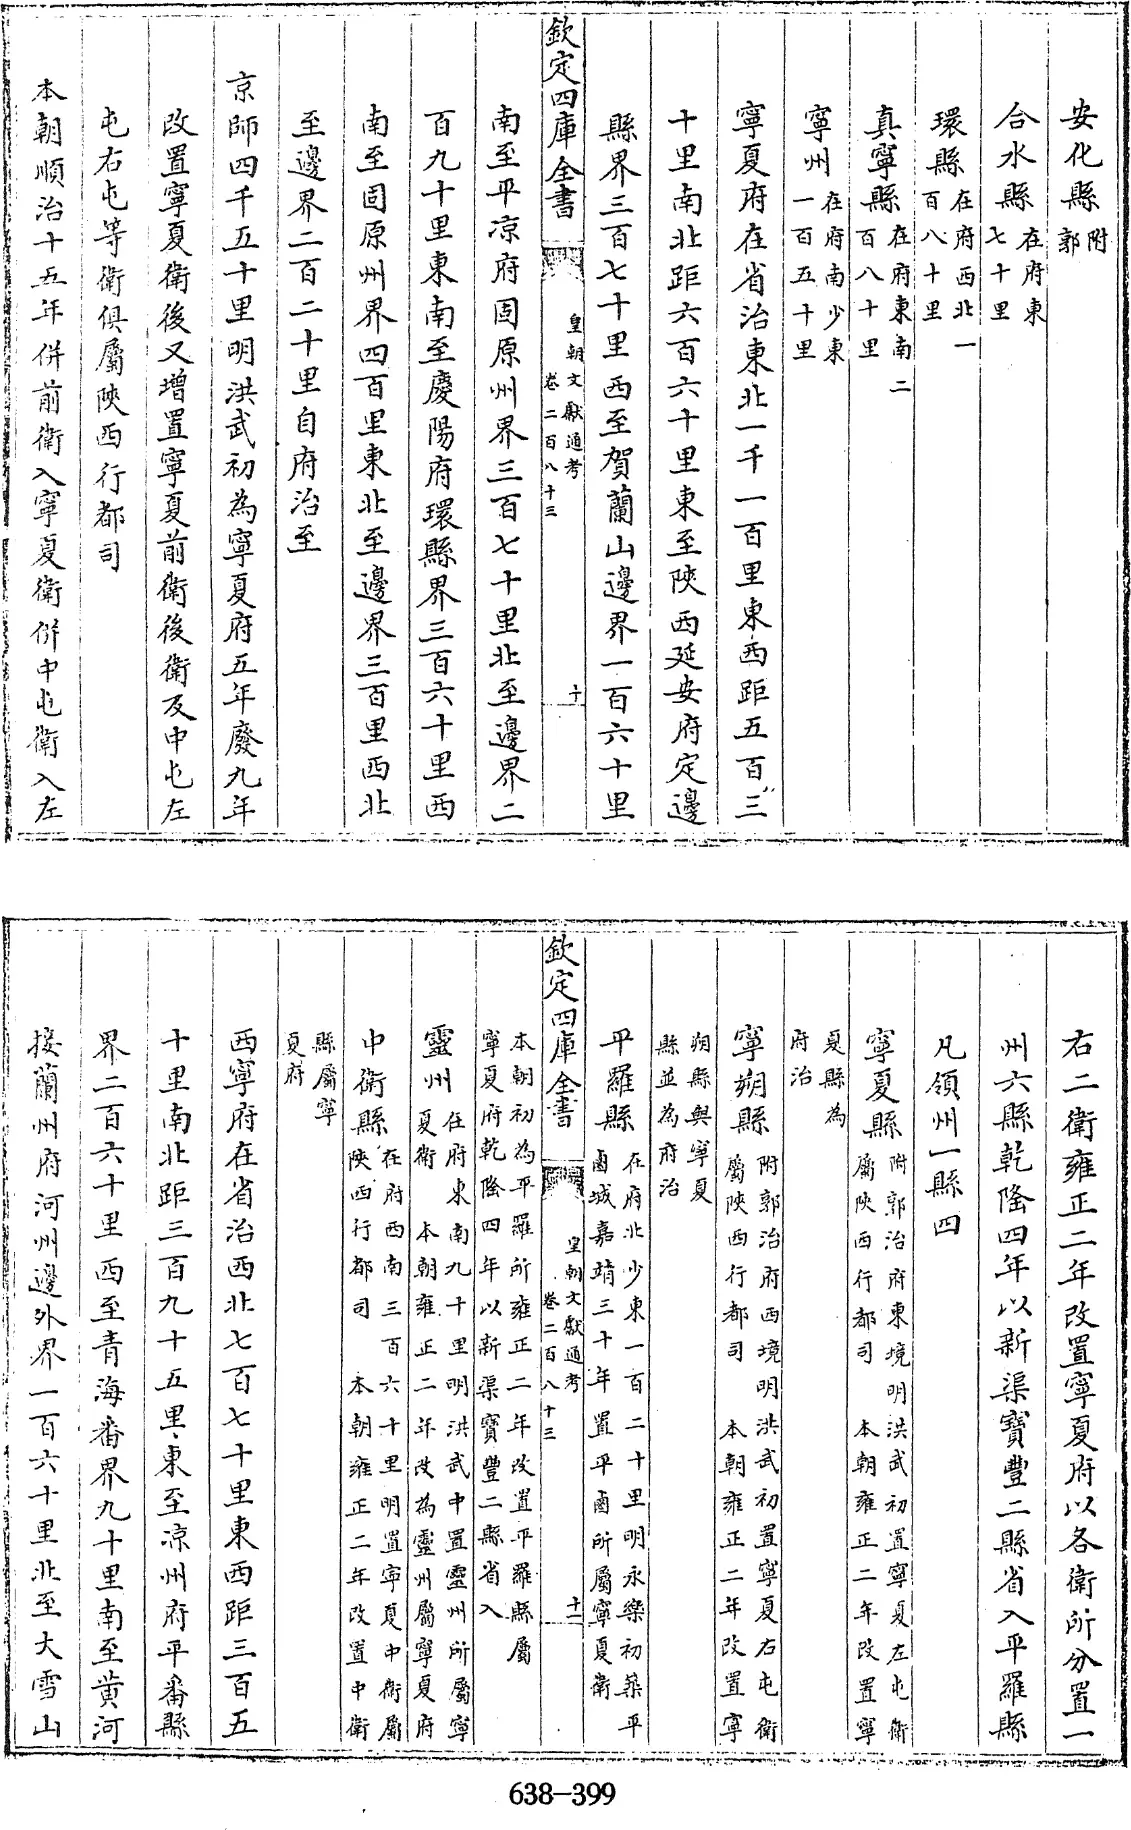 安化縣附郭
合水縣在府東七十里
環縣在府西北一百八十里
真寧縣在府東南二百八十里
寧州在府南少東一百五十里
寧夏府在省治東北一千一百里東西距五百三
十里南北距六百六十里東至陝西延安府定邊
縣界三百七十里西至賀蘭山邊界一百六十里
欽定四庫全書 皇朝文獻通考卷二百八十三 十
南至平涼府固原州界三百七十里北至邊界二
百九十里東南至慶陽府環縣界三百六十里西
南至固原州界四百里東北至邊界三百里西北
至邊界二百二十里自府治至
京師四千五十里明洪武初為寧夏府五年廢九年
改置寧夏衛後又增置寧夏前衛後衛及中屯左
屯右屯等衛俱屬陝西行都司
本朝順治十五年併前衛入寧夏衛併中屯衛入左
右二衛雍正二年改置寧夏府以各衛所分置一
州六縣乾隆四年以新渠寶豐二縣省入平羅縣
凡領州一縣四
寧夏縣附郭治府東境明洪武初置寧夏左屯衛屬陝西行都司 本朝雍正二年改置寧
夏縣為府治
寧朔縣附郭治府西境明洪武初置寧夏右屯衛屬陝西行都司 本朝雍正二年改置寧
朔縣與寧夏縣並為府治
平羅縣在府北少東一百二十里明永樂初築平鹵城嘉靖三十年置平鹵所屬寧夏衛
欽定四庫全書 皇朝文獻通考卷二百八十三 十一
本朝初為平羅所雍正二年改置平羅縣屬寧夏府乾隆四年以新渠寶豐二縣省入
靈州在府東南九十里明洪武中置靈州所屬寧夏衛 本朝雍正二年改為靈州屬寧夏府
中衛縣在府西南三百六十里明置寧夏中衛屬陝西行都司 本朝雍正二年改置中衛
縣屬寧夏府
西寧府在省治西北七百七十里東西距三百五
十里南北距三百九十五里東至涼州府平番縣
界二百六十里西至青海番界九十里南至黃河
接蘭州府河州邊外界一百六十里北至大雪山
638-399